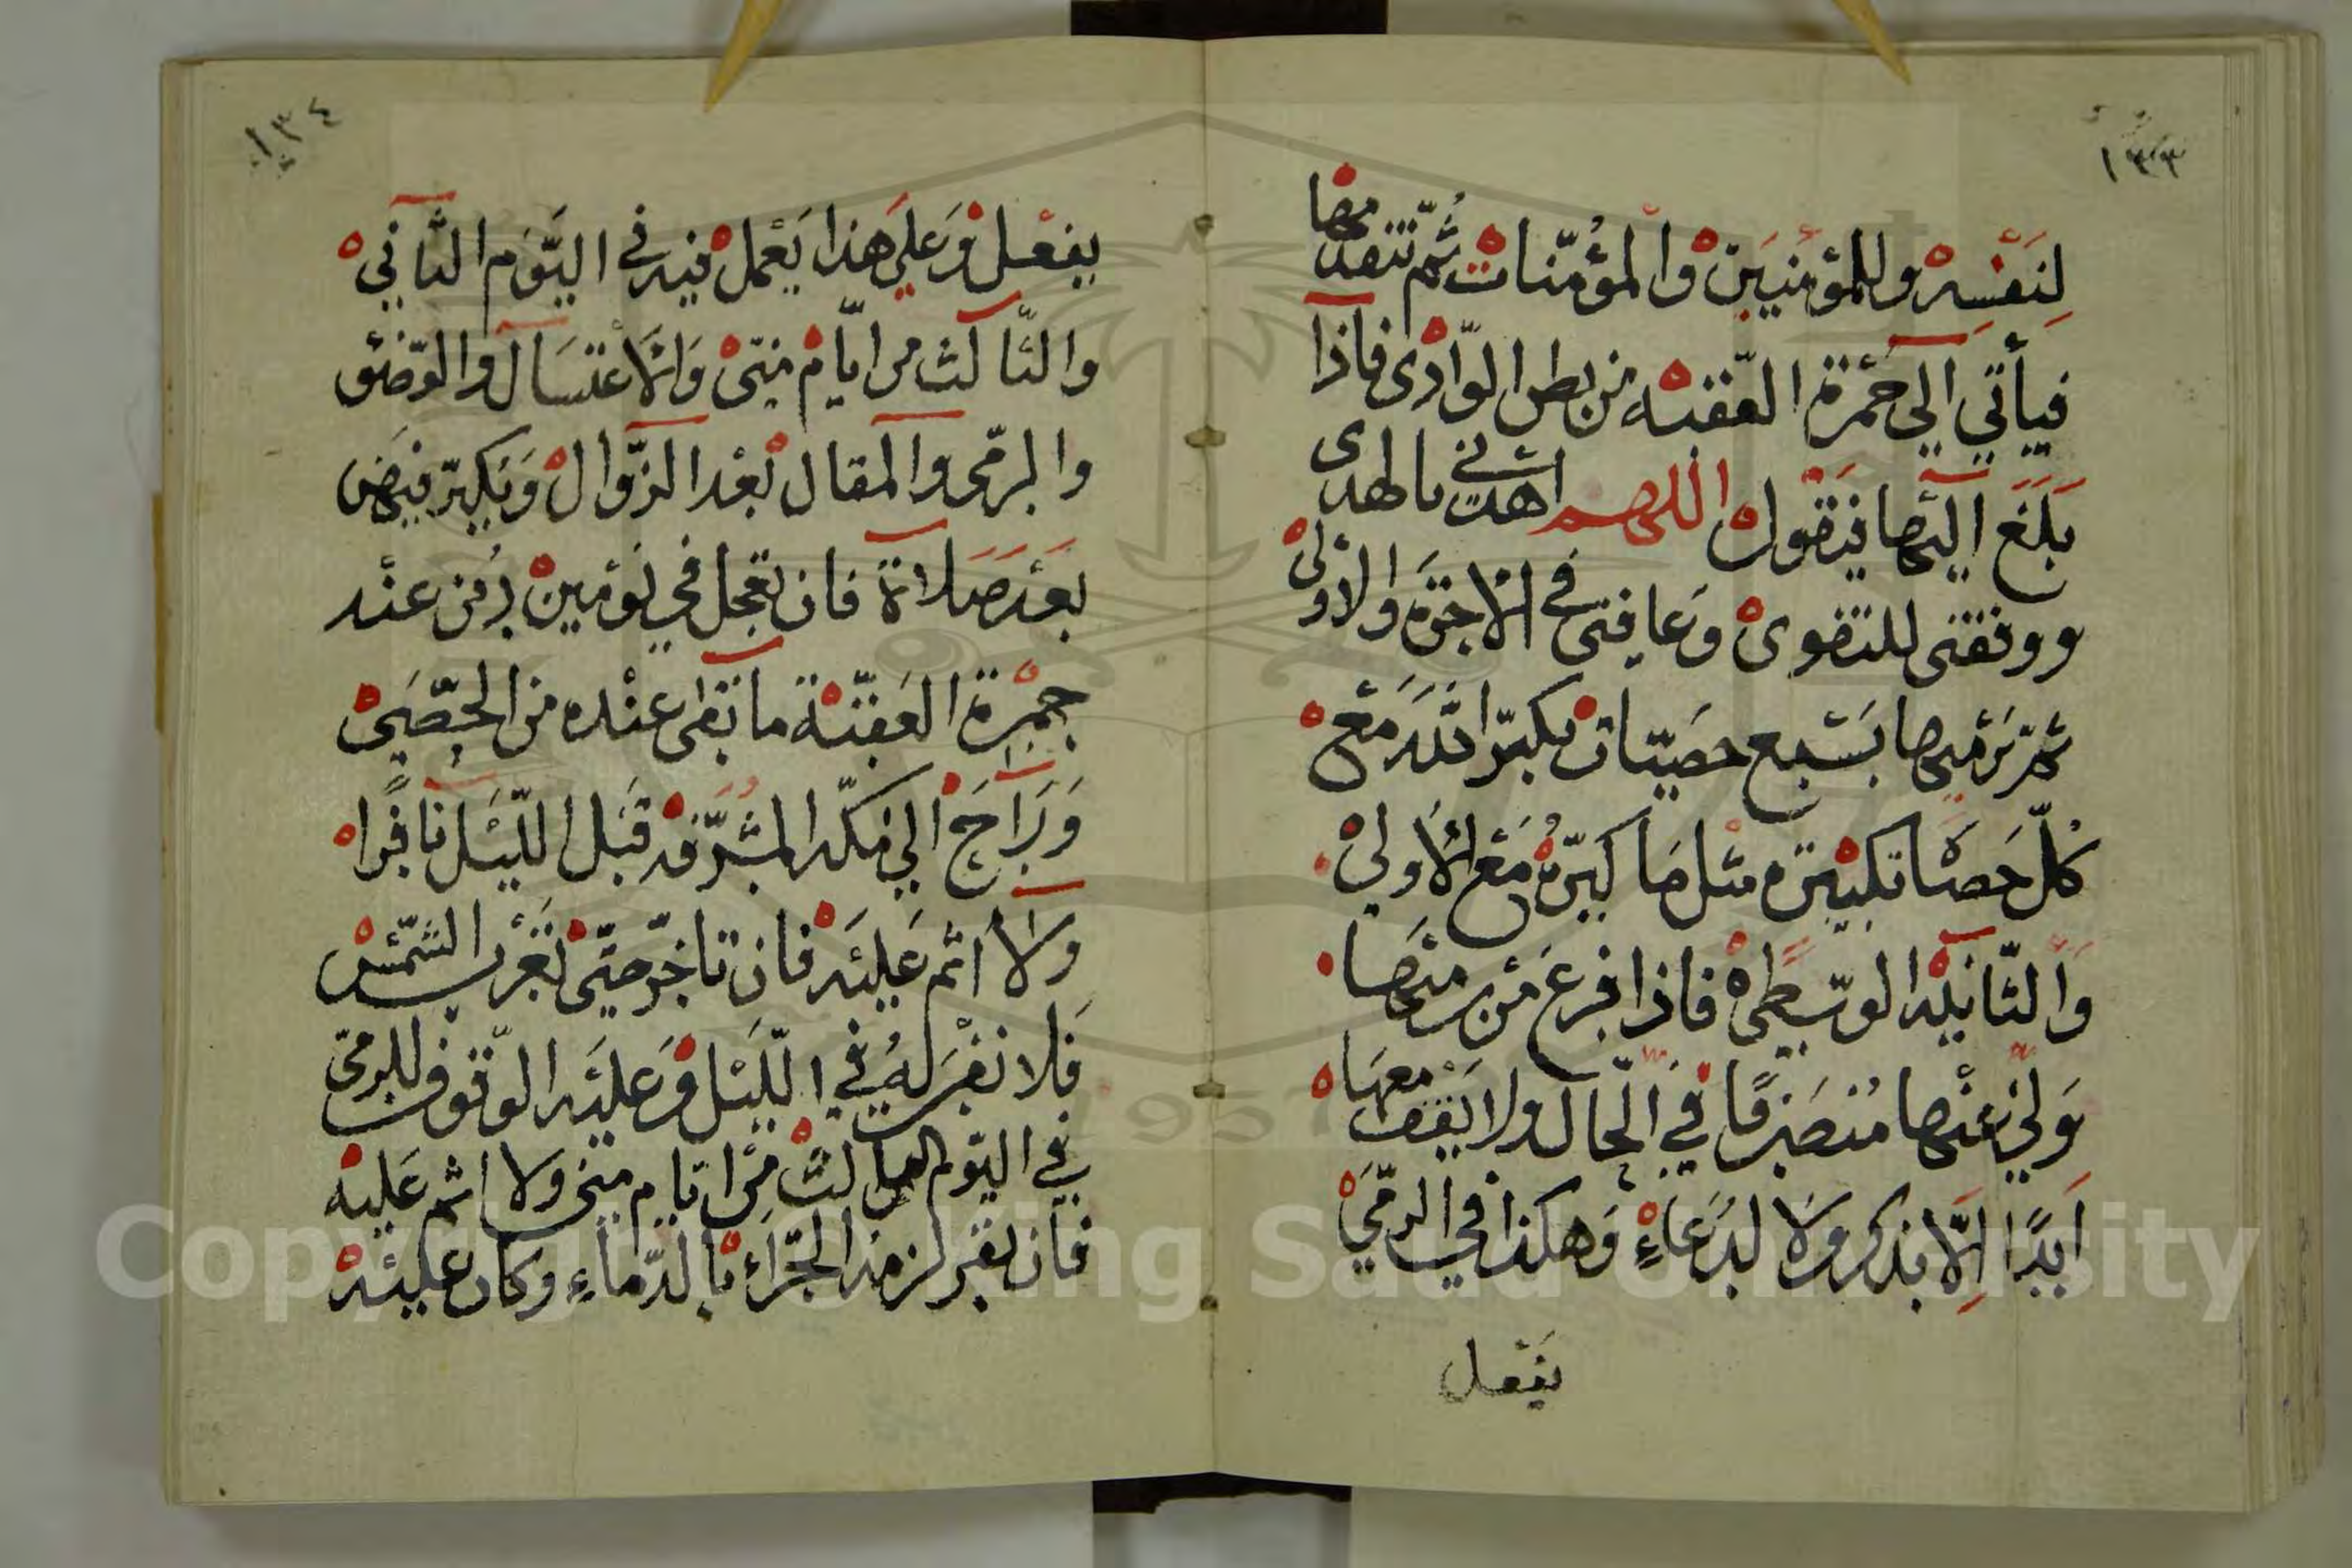 ١٣٣
لِنَفْسِه وللمؤمنين والمؤمنات ثم تتقد معها
فيأتي الي جمرة العقبه من بطن الوادى فاذا
بلغ اليها فيقول اللهم اهدنى بالهدى
ووفقنى للتقوى وعافنى في الاخرة والاولى
ثم ترميها بسبع حصيات تكبر الله مع
كل حصاة تكبيرة مثل ما كبر مع الاولى
والثانيه الوسطى فاذا فرغ من رميها
ولي عنها منصرفا في الحال ولا يقف معها
ابدًا الّا بذكر ولا لدعاءٍ وهكذا في الرمي
يفعل
١٣٤
يفعل وعلى هذا يعمل فيه في اليوم الثاني
والثالث من ايام منى والاغتسال والوضئو
والرمى والمقال بعد الزوال ويكبر فيهن
بعد صلاة فان تعجل في يومين دفن عند
جمرة العقبة ما تبقى عنده من الحصى
وراح الي مكه المشرفه قبل الليل نافرا
ولا اثم عليه فان تاخر حتى تغرب الشمس
فلا نفر له في الليل وعليه الوقوف للرمى
في اليوم الثالث من ايام منى ولا اثم عليه
فان نفر لزمه الجزاء بالدماء وكان عليه
Copyright © King Saud University
1957